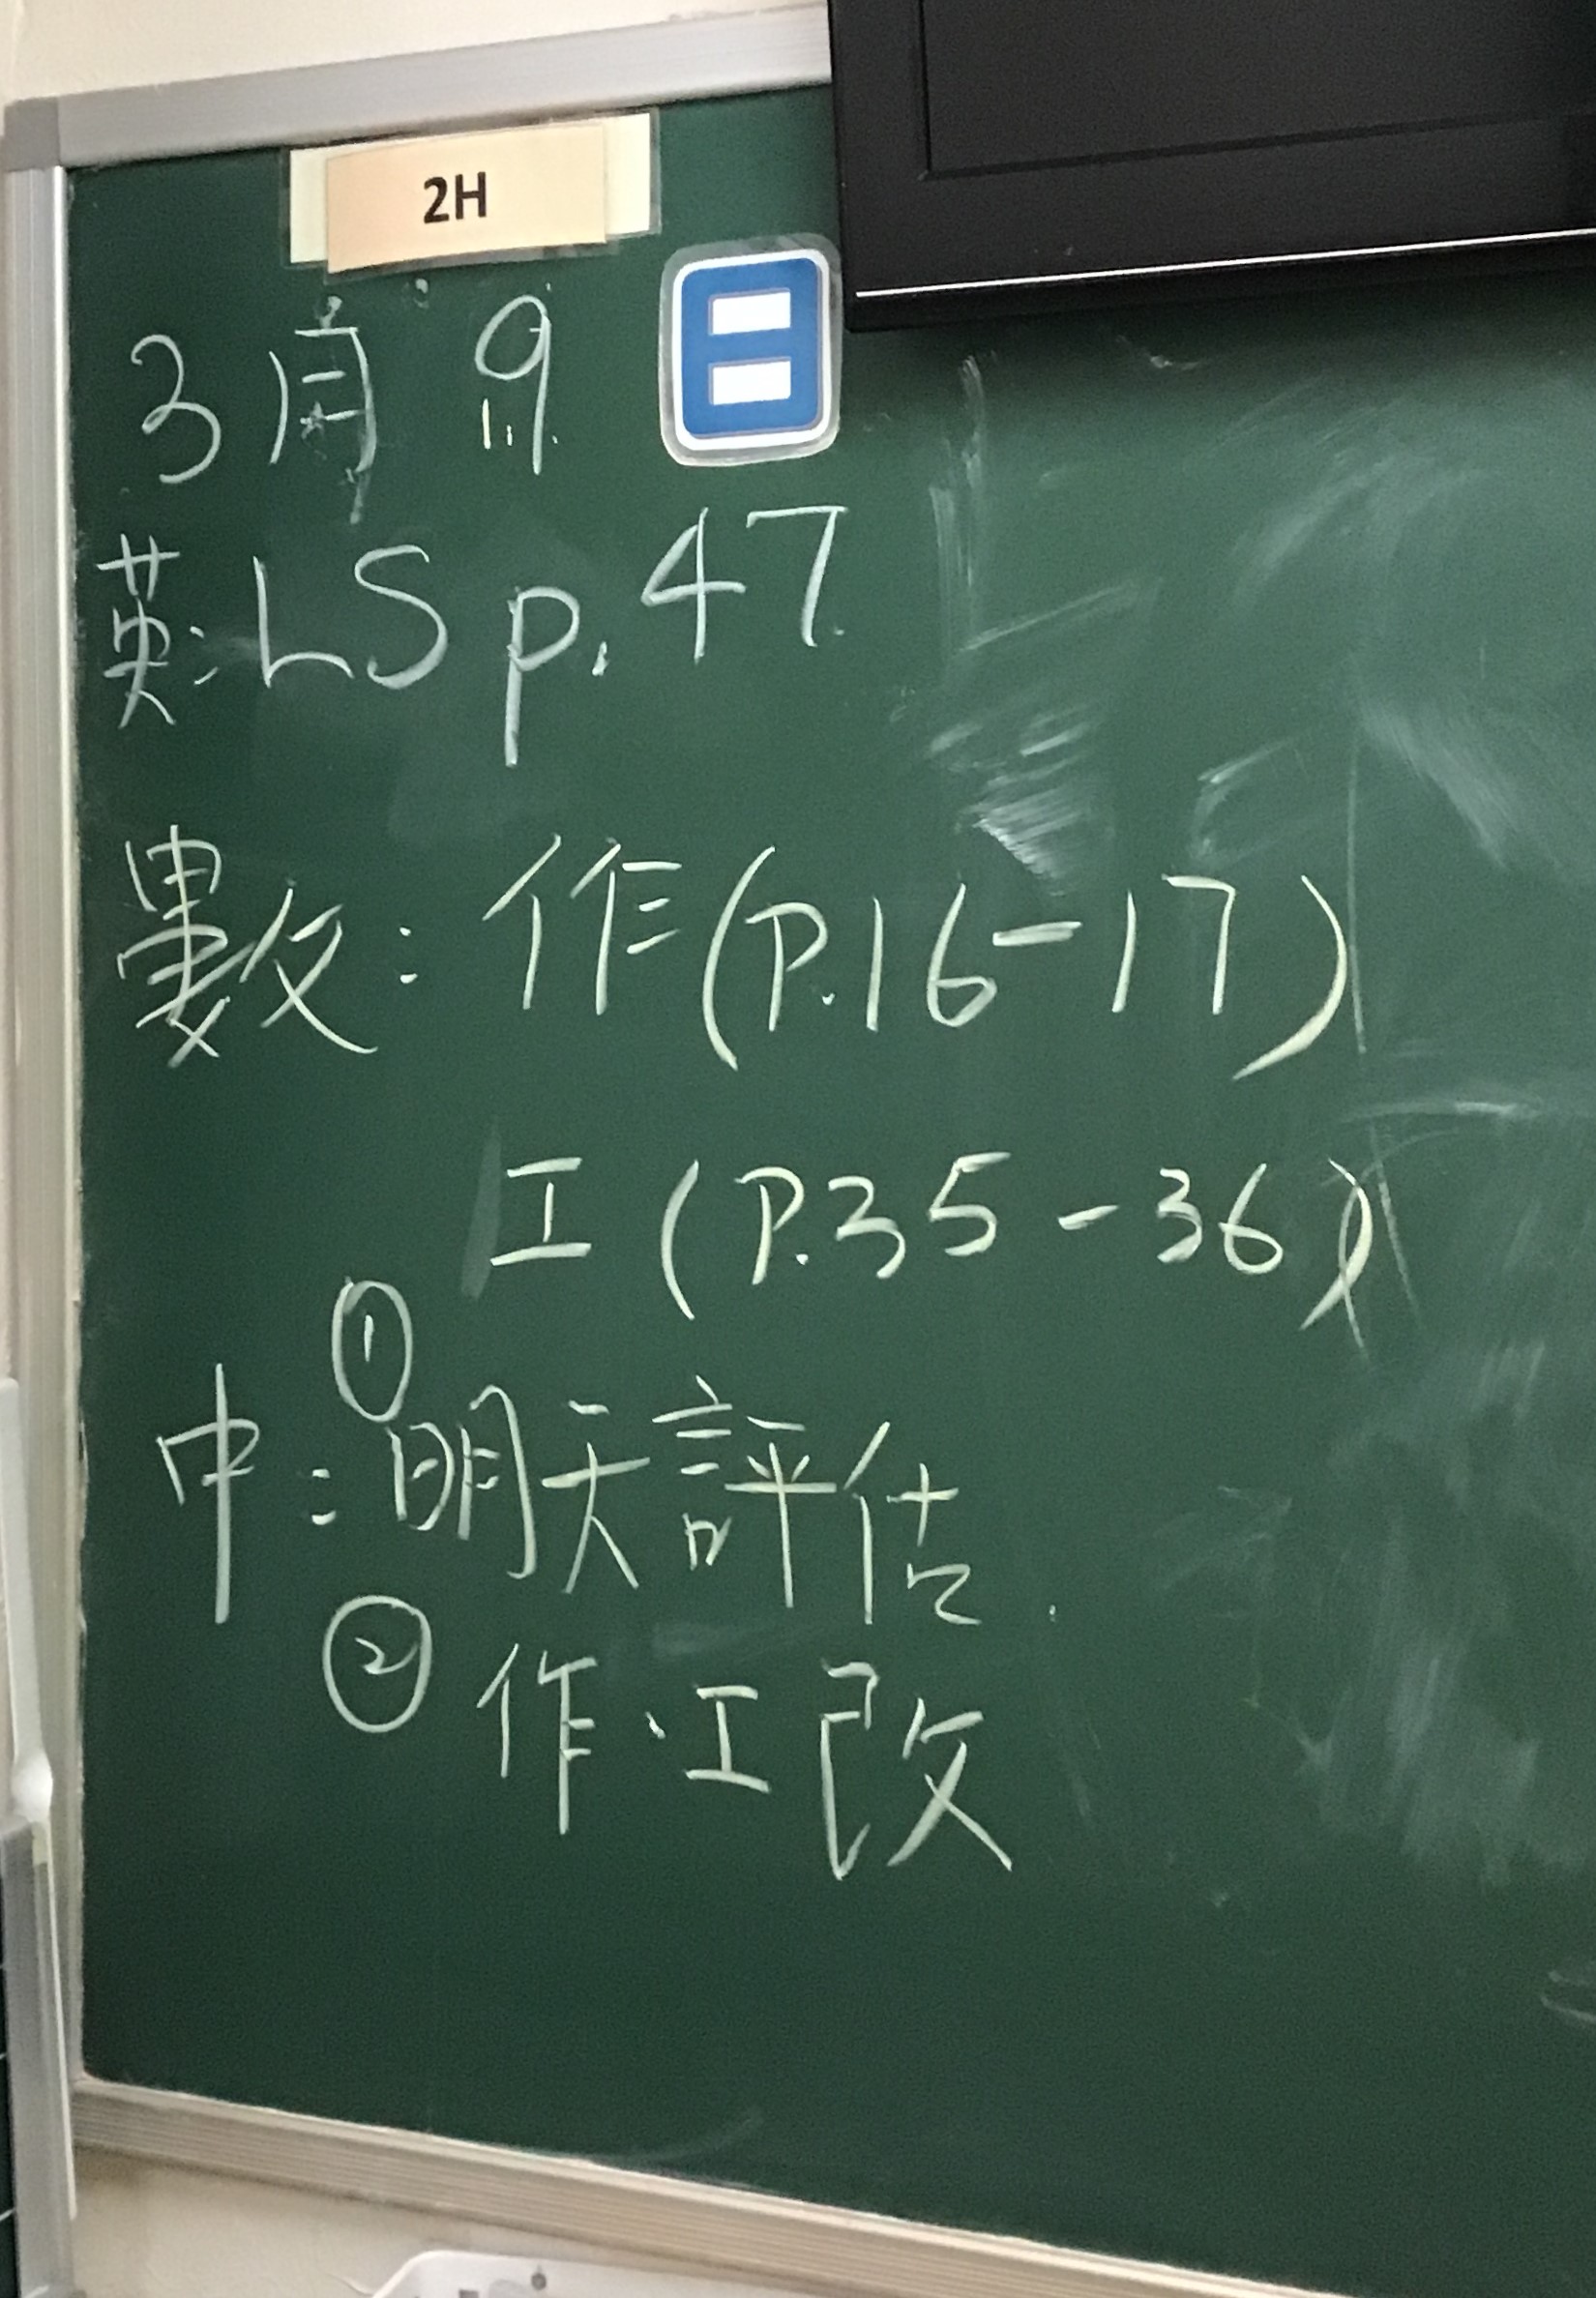 2H
3月9日
英:LS p.47
數:作(P.16-17)
工(P.35-36)
中:①明天評估
②作、工改